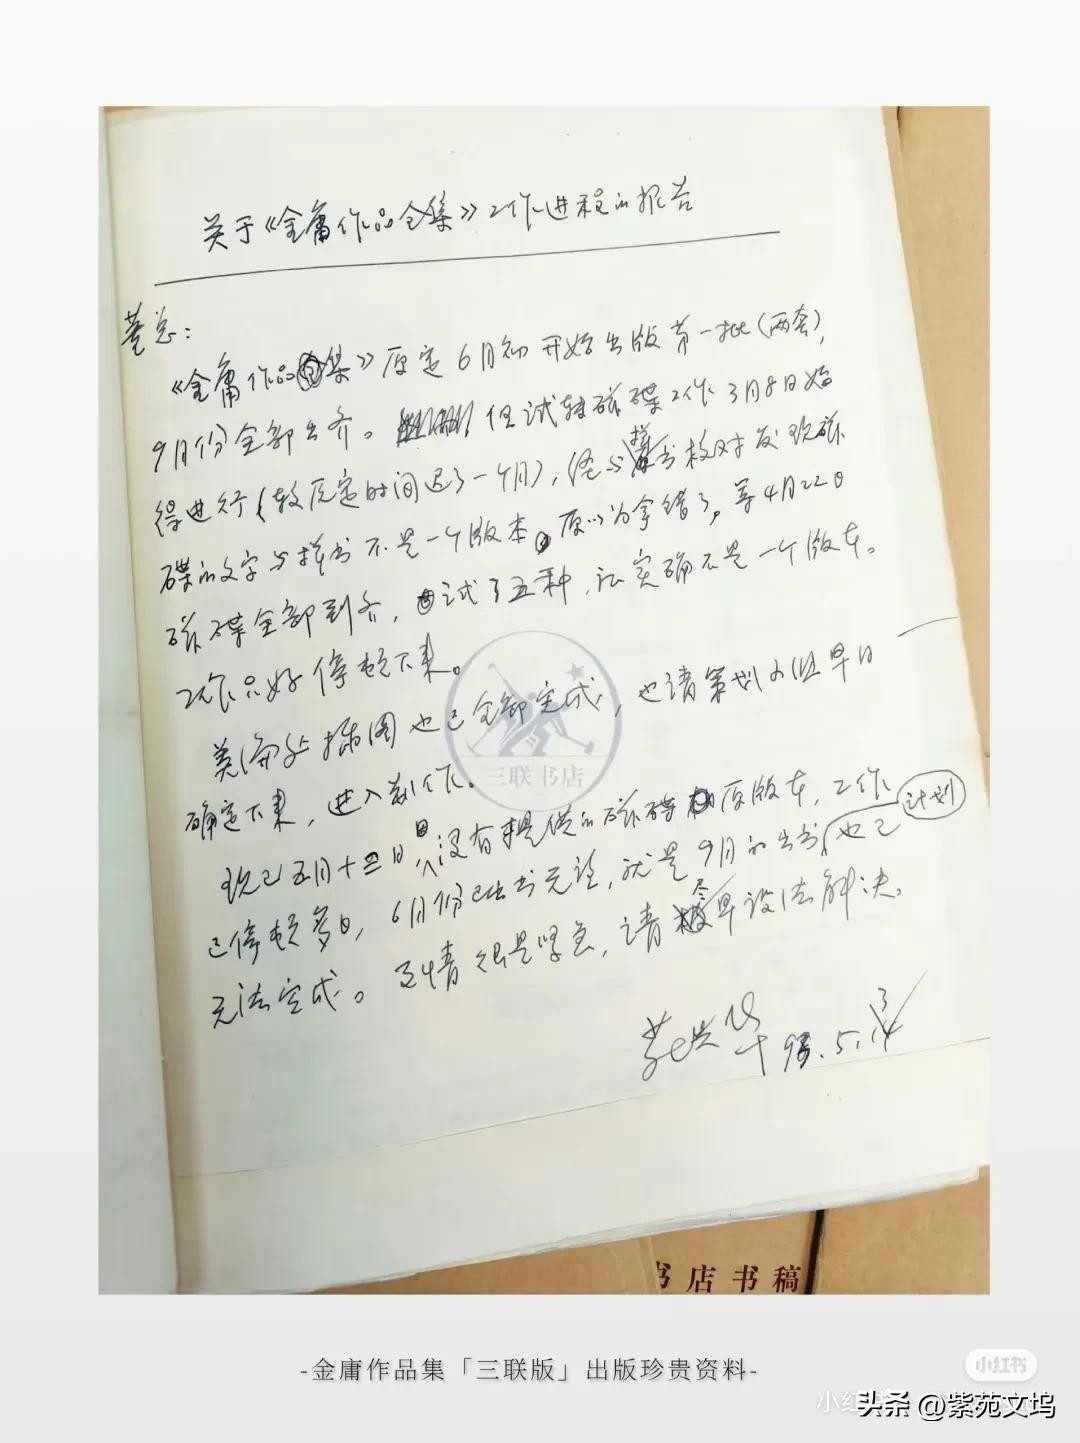 关于《金庸作品全集》工作进程的报告
董总：
《金庸作品集》原定6月初开始出版第一批(两套),
9月份全部出齐。但试转磁碟工作3月8日始
得进行(较原定时间迟了一个月),经与样书校对发现磁
碟的文字与样书不是一个版本。原以为拿错了,等4月22日
磁碟全部到齐,试了五种,证实确不是一个版本。
工作只好停顿下来。
美编与插图也已全部完成,也请策划小组早日
确定下来,进入制作。
现已五月十三日,因没有提供的磁碟和原版本,工作
已停顿多日,6月份已出书无望,就是9月的出书计划也已
无法完成。事情很是紧急,请尽早设法解决。
93.5.13
三联书店
书店书稿
-金庸作品集「三联版」出版珍贵资料-
小红书
头条 @紫苑文坞